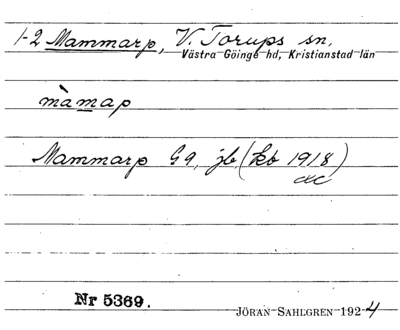 1-2 Mammarp, V. Torups sn.
Västra Göinge hd, Kristianstad län
màmap
Mammarp Gq, jb, (kb 1918)
ac
Nr 5369.
JÖRAN SAHLGREN 1924